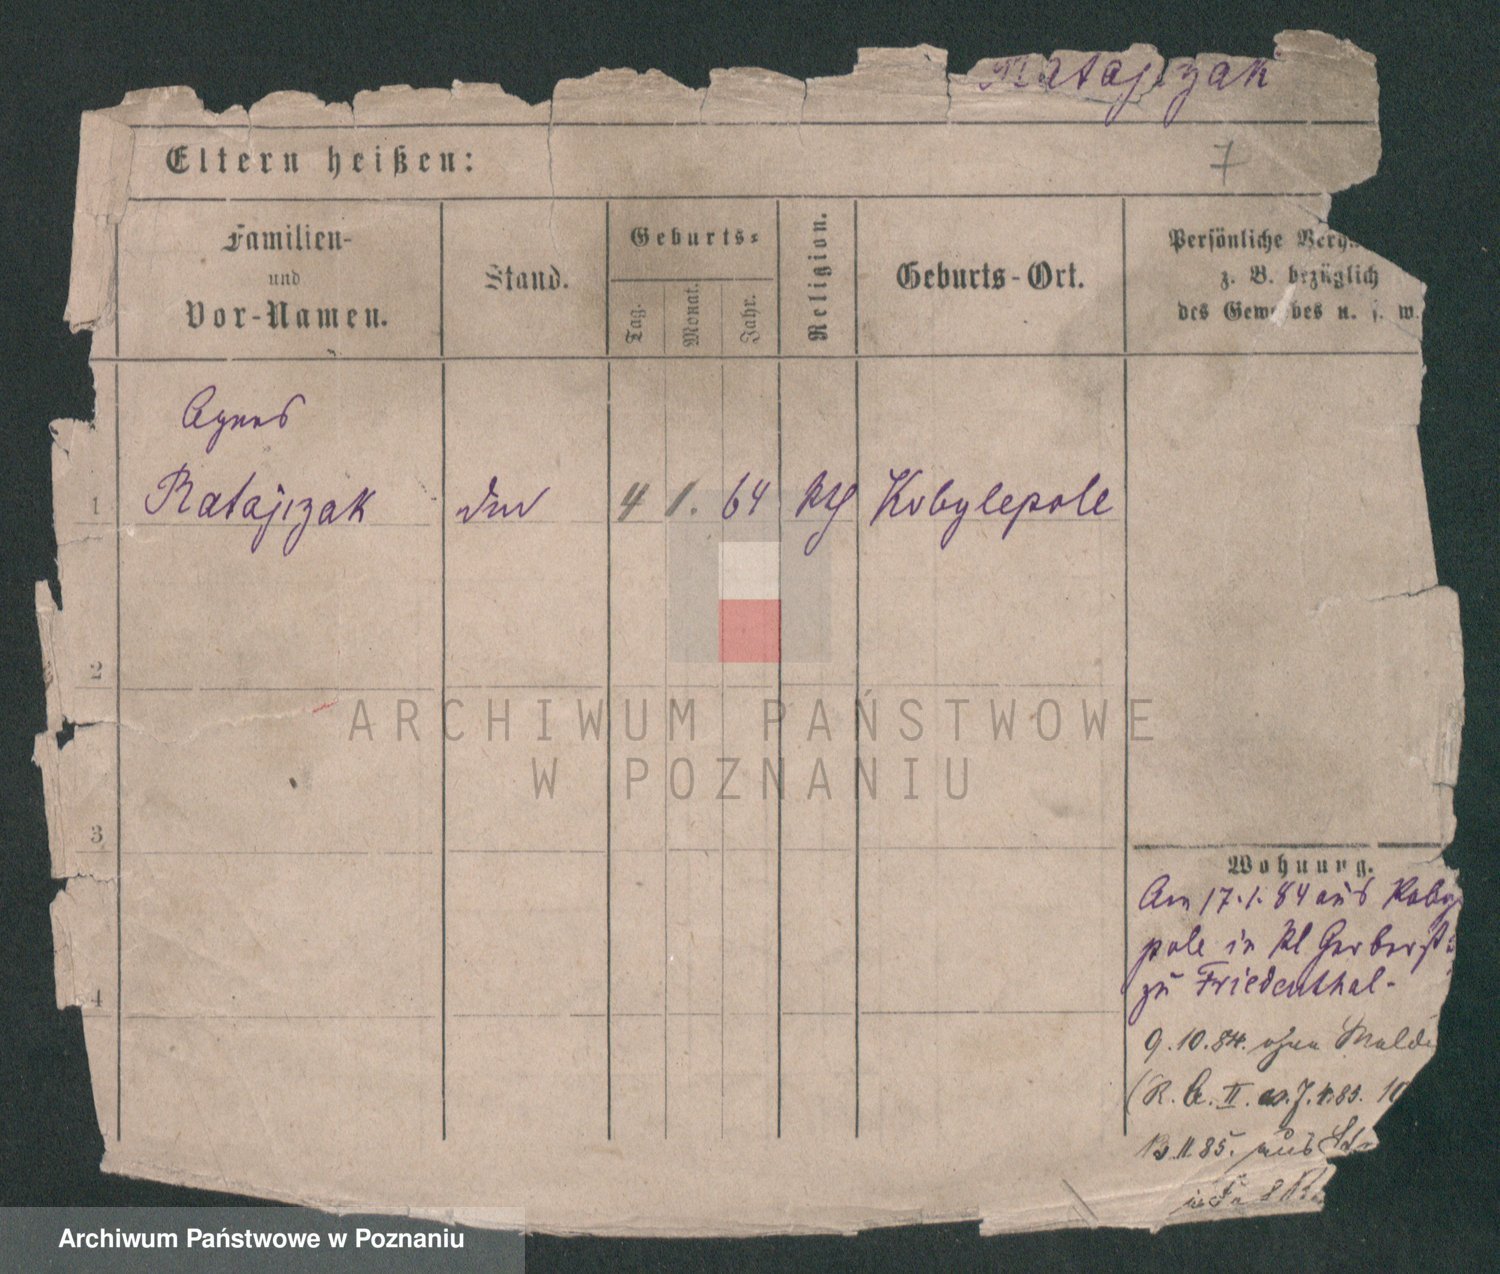 Ratajczak
7
Eltern heißen:
Familien-
und
Vor-Namen.
Stand.
Geburts-
Tag.
Monat.
Jahr.
Religion.
Geburts-Ort.
Persönliche
z. B. bezüglich
des Gewerbes u. s. w.
Agnes
1 Ratajczak 4 1. 64 Kobylepole
2
3
4
Wohnung.
Am 17.1.84 aus
pole in Kl Gerberst
zu Friedenthal-
9.10.84. ohne
(R. II. 85. 10
II 85. aus
ARCHIWUM PAŃSTWOWE
W POZNANIU
Archiwum Państwowe w Poznaniu